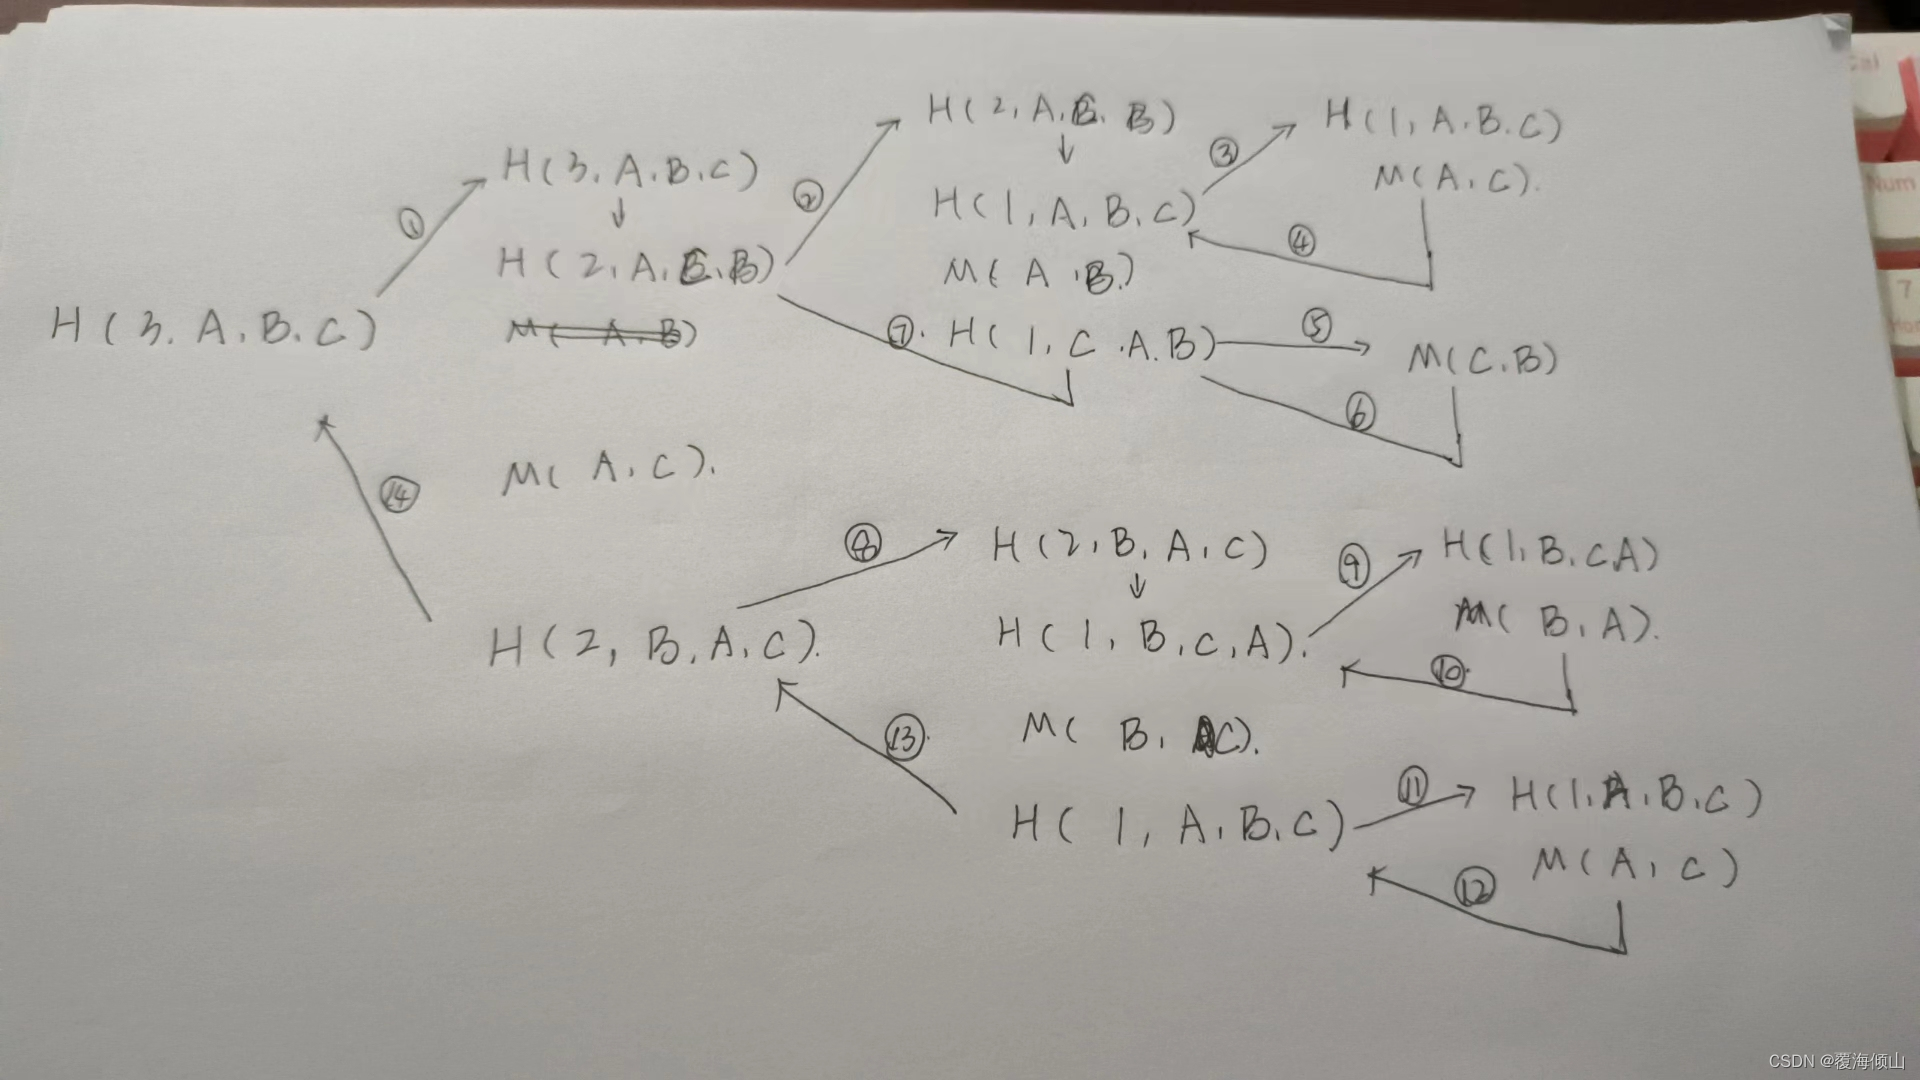 H(3.A.B.C)
①
H(3.A.B.C)
↓
H(2,A,C,B)
M(A.B)
②
H(2,A.C.B)
↓
H(1,A,B,C)
M(A,B)
⑦ H(1,C.A.B)
③
H(1,A.B.C)
M(A,C).
④
⑤
M(C.B)
⑥
⑭
M(A,C).
H(2,B,A,C).
⑧
H(2,B,A,C)
↓
H(1,B,C,A).
M(B,C).
⑬
H(1,A,B,C)
⑨
H(1,B,C,A)
M(B,A).
⑩
⑪
H(1,A,B,C)
M(A,C)
⑫
Num
7
CSDN @覆海倾山